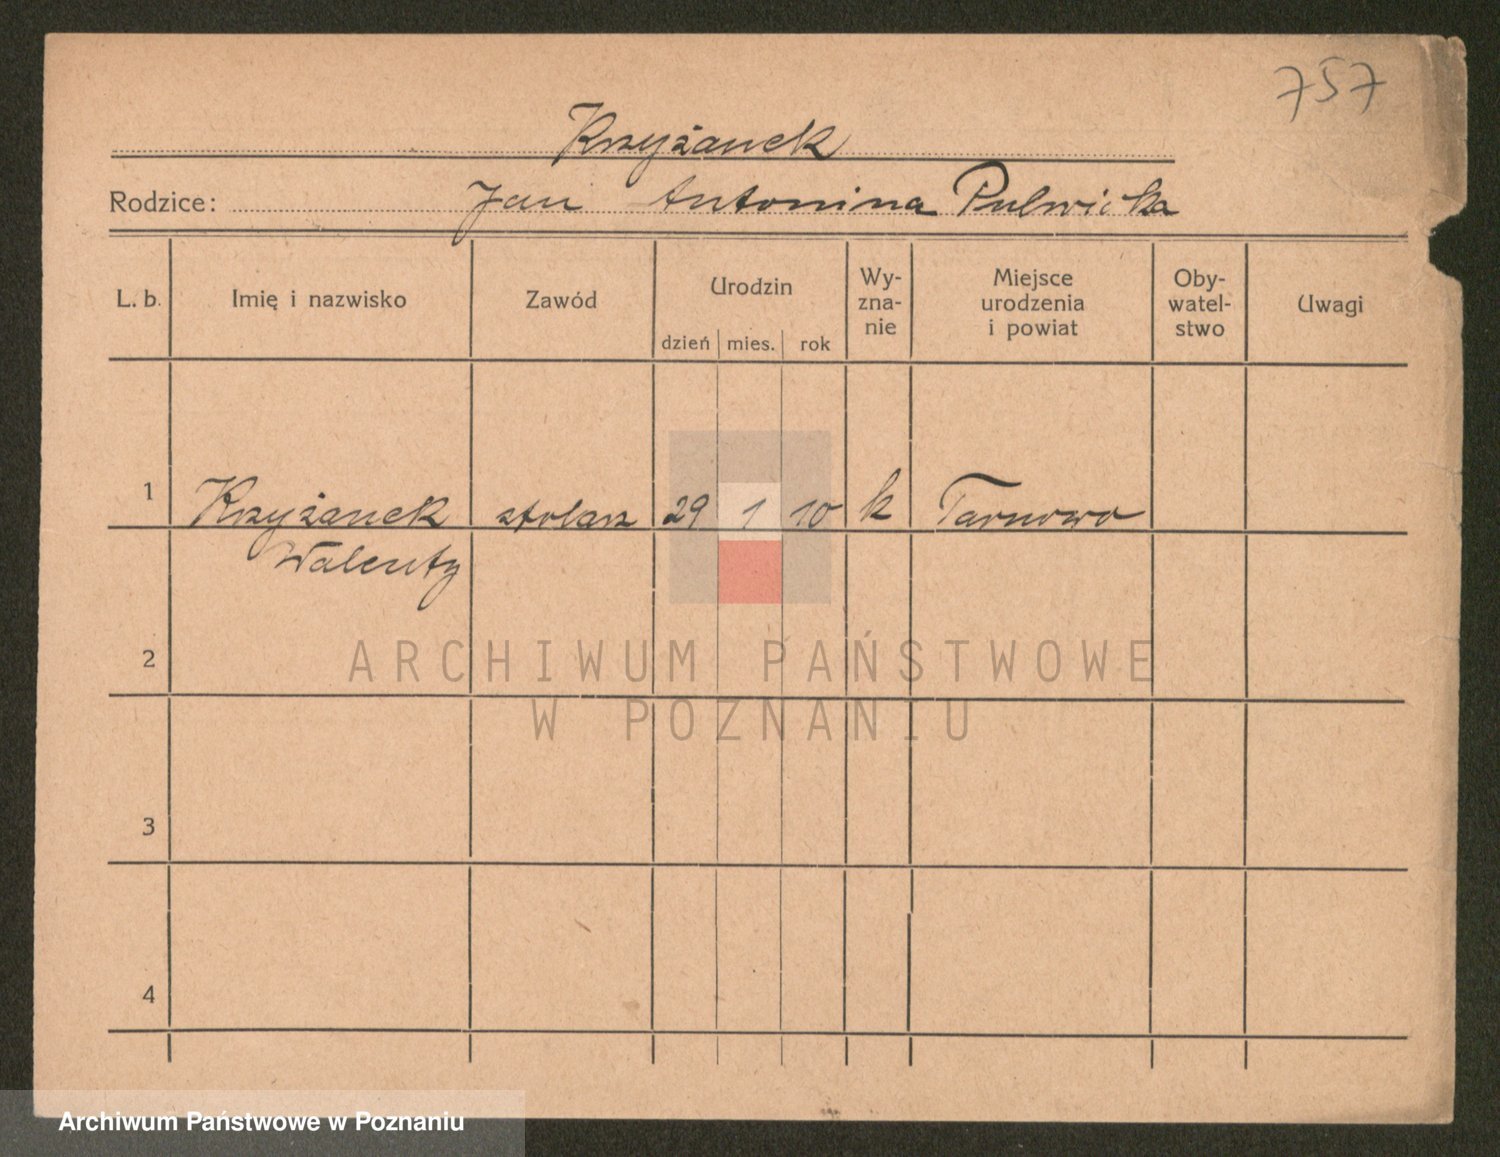 757
Krzyżanek
Rodzice: Jan Antonina Pulwicka
L. b. Imię i nazwisko Zawód Urodzin dzień mies. rok Wy-zna-nie Miejsce urodzenia i powiat Oby-watel-stwo Uwagi
1 Krzyżanek stolarz 29 1 10 k Tarnowo
Walenty
2
ARCHIWUM PAŃSTWOWE
W POZNANIU
3
4
Archiwum Państwowe w Poznaniu